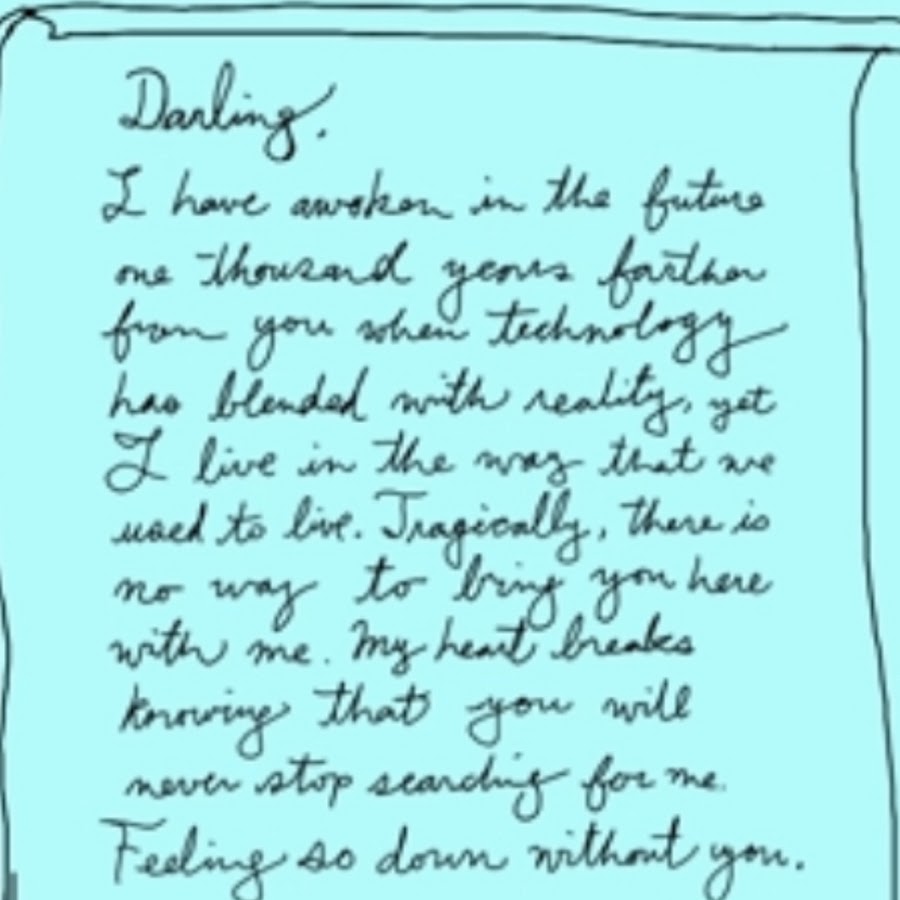 Darling,
I have awoken in the future
one thousand years farther
from you when technology
has blended with reality, yet
I live in the way that we
used to live. Tragically, there is
no way to bring you here
with me. My heart breaks
knowing that you will
never stop searching for me.
Feeling so down without you.